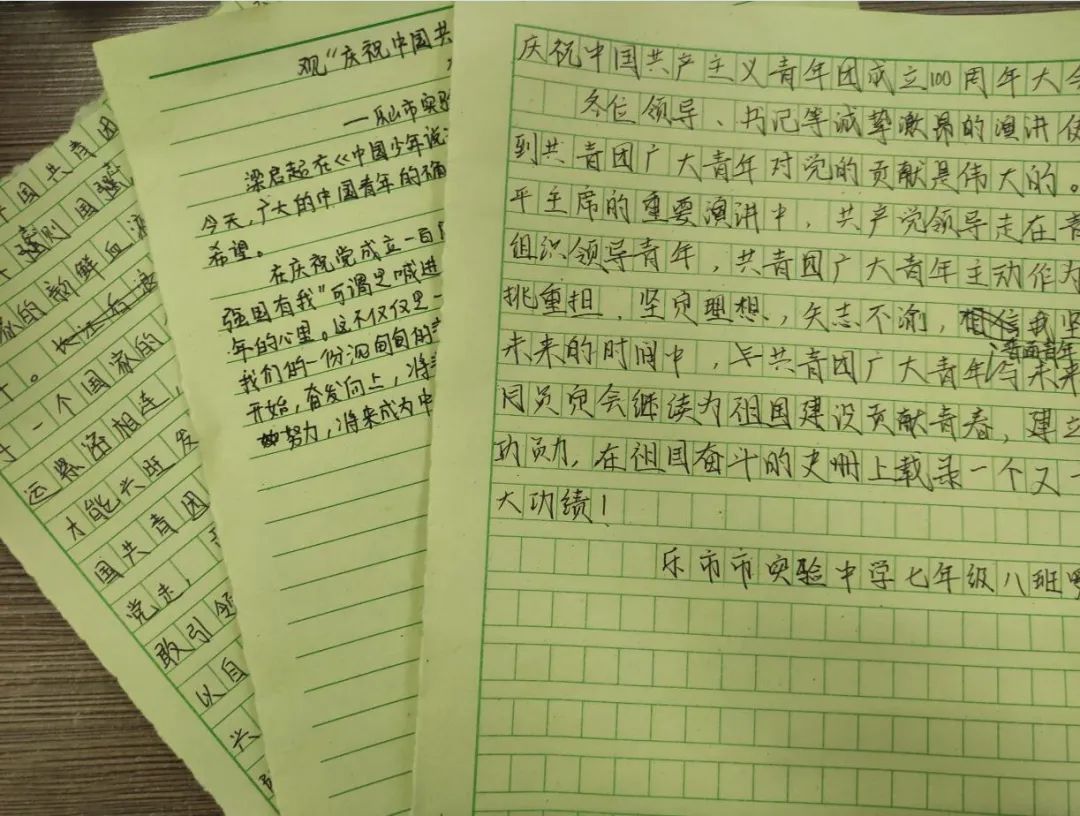 中国共青团
强则国强
的新鲜血液
一个国家的
运紧密相连，
才能兴旺发
国共青团
党走，
敢引领
以自
兴
观“庆祝中国共
——乐山市实验
梁启超在《中国少年说
今天，广大的中国青年的确
希望。
在庆祝党成立一百
强国有我”可谓是喊进
年的心里。这不仅仅是一
我们的一份沉甸甸的
开始，奋发向上，将
努力，将来成为中
庆祝中国共产主义青年团成立100周年大会
各位领导、书记等诚挚激昂的演讲使
到共青团广大青年对党的贡献是伟大的。
平主席的重要演讲中，共产党领导走在青
组织领导青年，共青团广大青年主动作为
挑重担、坚定理想、矢志不渝，
未来的时间中，共青团广大青年与未来
同员员会继续为祖国建设贡献青春，建立
功勋，在祖国奋斗的史册上载录一个又一
大功绩！
乐市市实验中学七年级八班